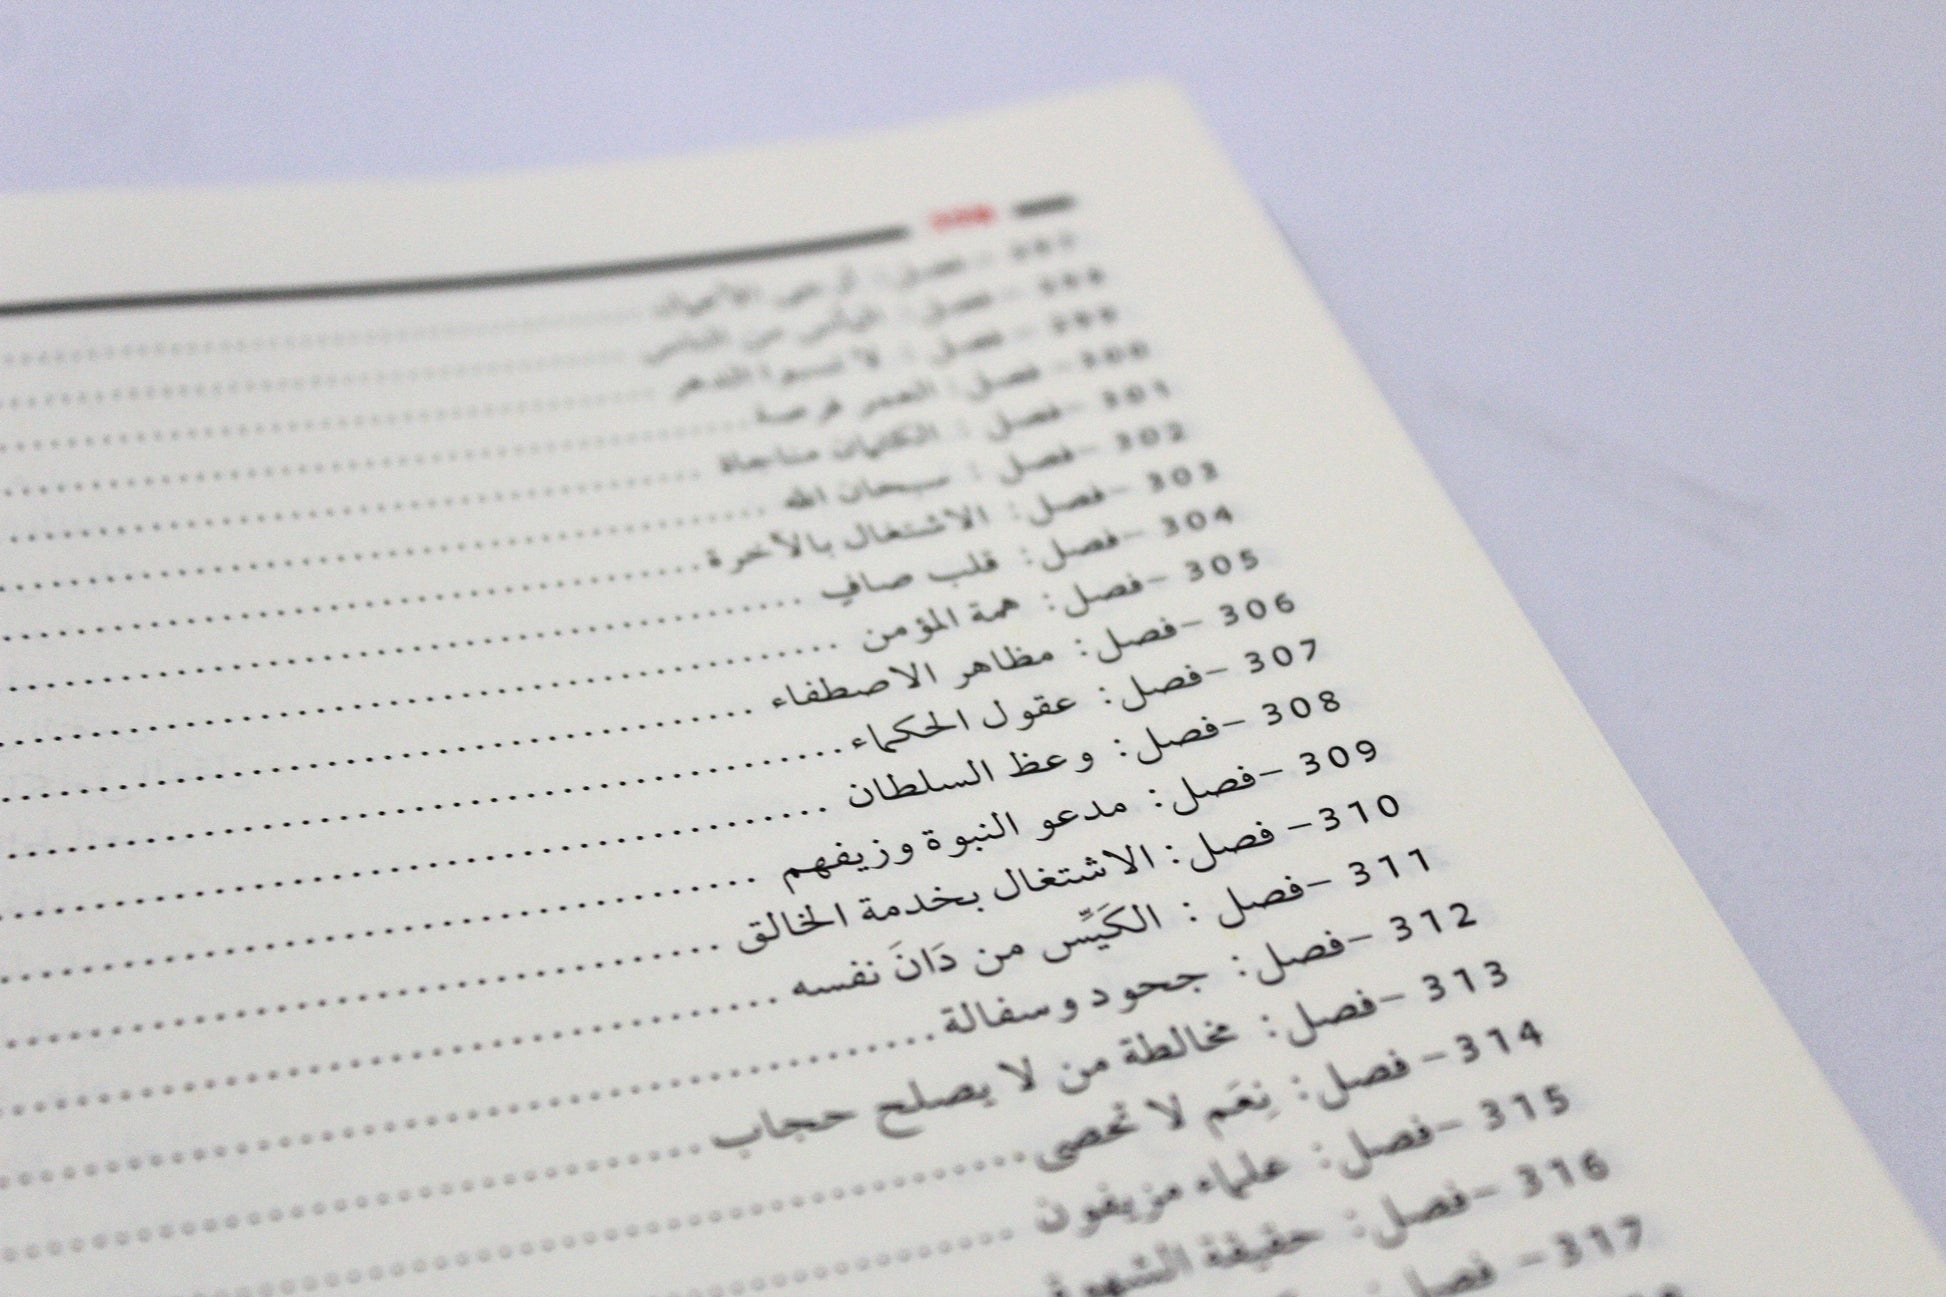 فصل :
298 - فصل : اليأس من الناس
299 - فصل : لا تسبوا الدهر
300 - فصل : العمر فرصة
301 - فصل : الكلمات مناجاة
302 - فصل : سبحان الله
303 - فصل : الاشتغال بالآخرة
304 - فصل : قلب صافي
305 - فصل : همة المؤمن
306 - فصل : مظاهر الاصطفاء
307 - فصل : عقول الحكماء
308 - فصل : وعظ السلطان
309 - فصل : مدعو النبوة وزيفهم
310 - فصل : الاشتغال بخدمة الخالق
311 - فصل : الكَيِّس من دَانَ نفسه
312 - فصل : جحود وسفالة
313 - فصل : مخالطة من لا يصلح حجاب
314 - فصل : نِعَم لا تحصى
315 - فصل : علماء مزيفون
316 - فصل : حقيقة الشهوة
317 - فصل :